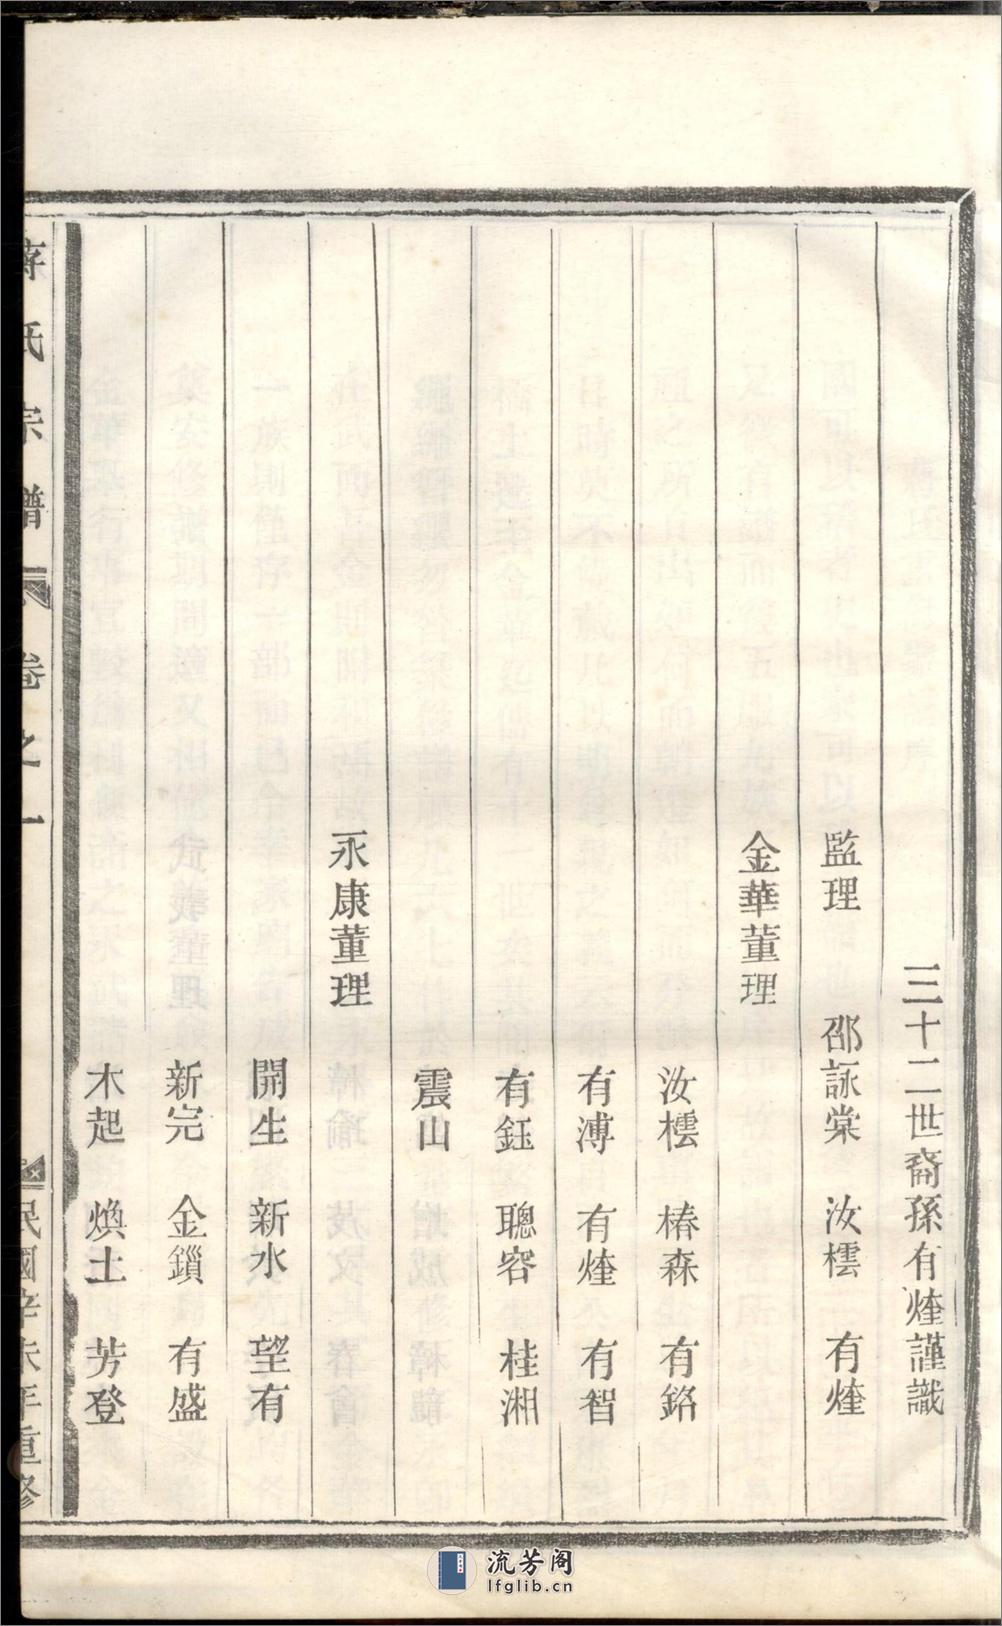 三十二世裔孫有煃謹識
監理　邵詠棠　汝橒　有煃
金華董理
汝橒　椿森　有銘
有溥　有煃　有智
有鈺　聰容　桂湘
震山
永康董理
開生　新水　望有
新完　金鎖　有盛
木起　煥土　芳登
蔣氏宗譜　卷之一　民國辛未年重修
流芳阁
lfglib.cn